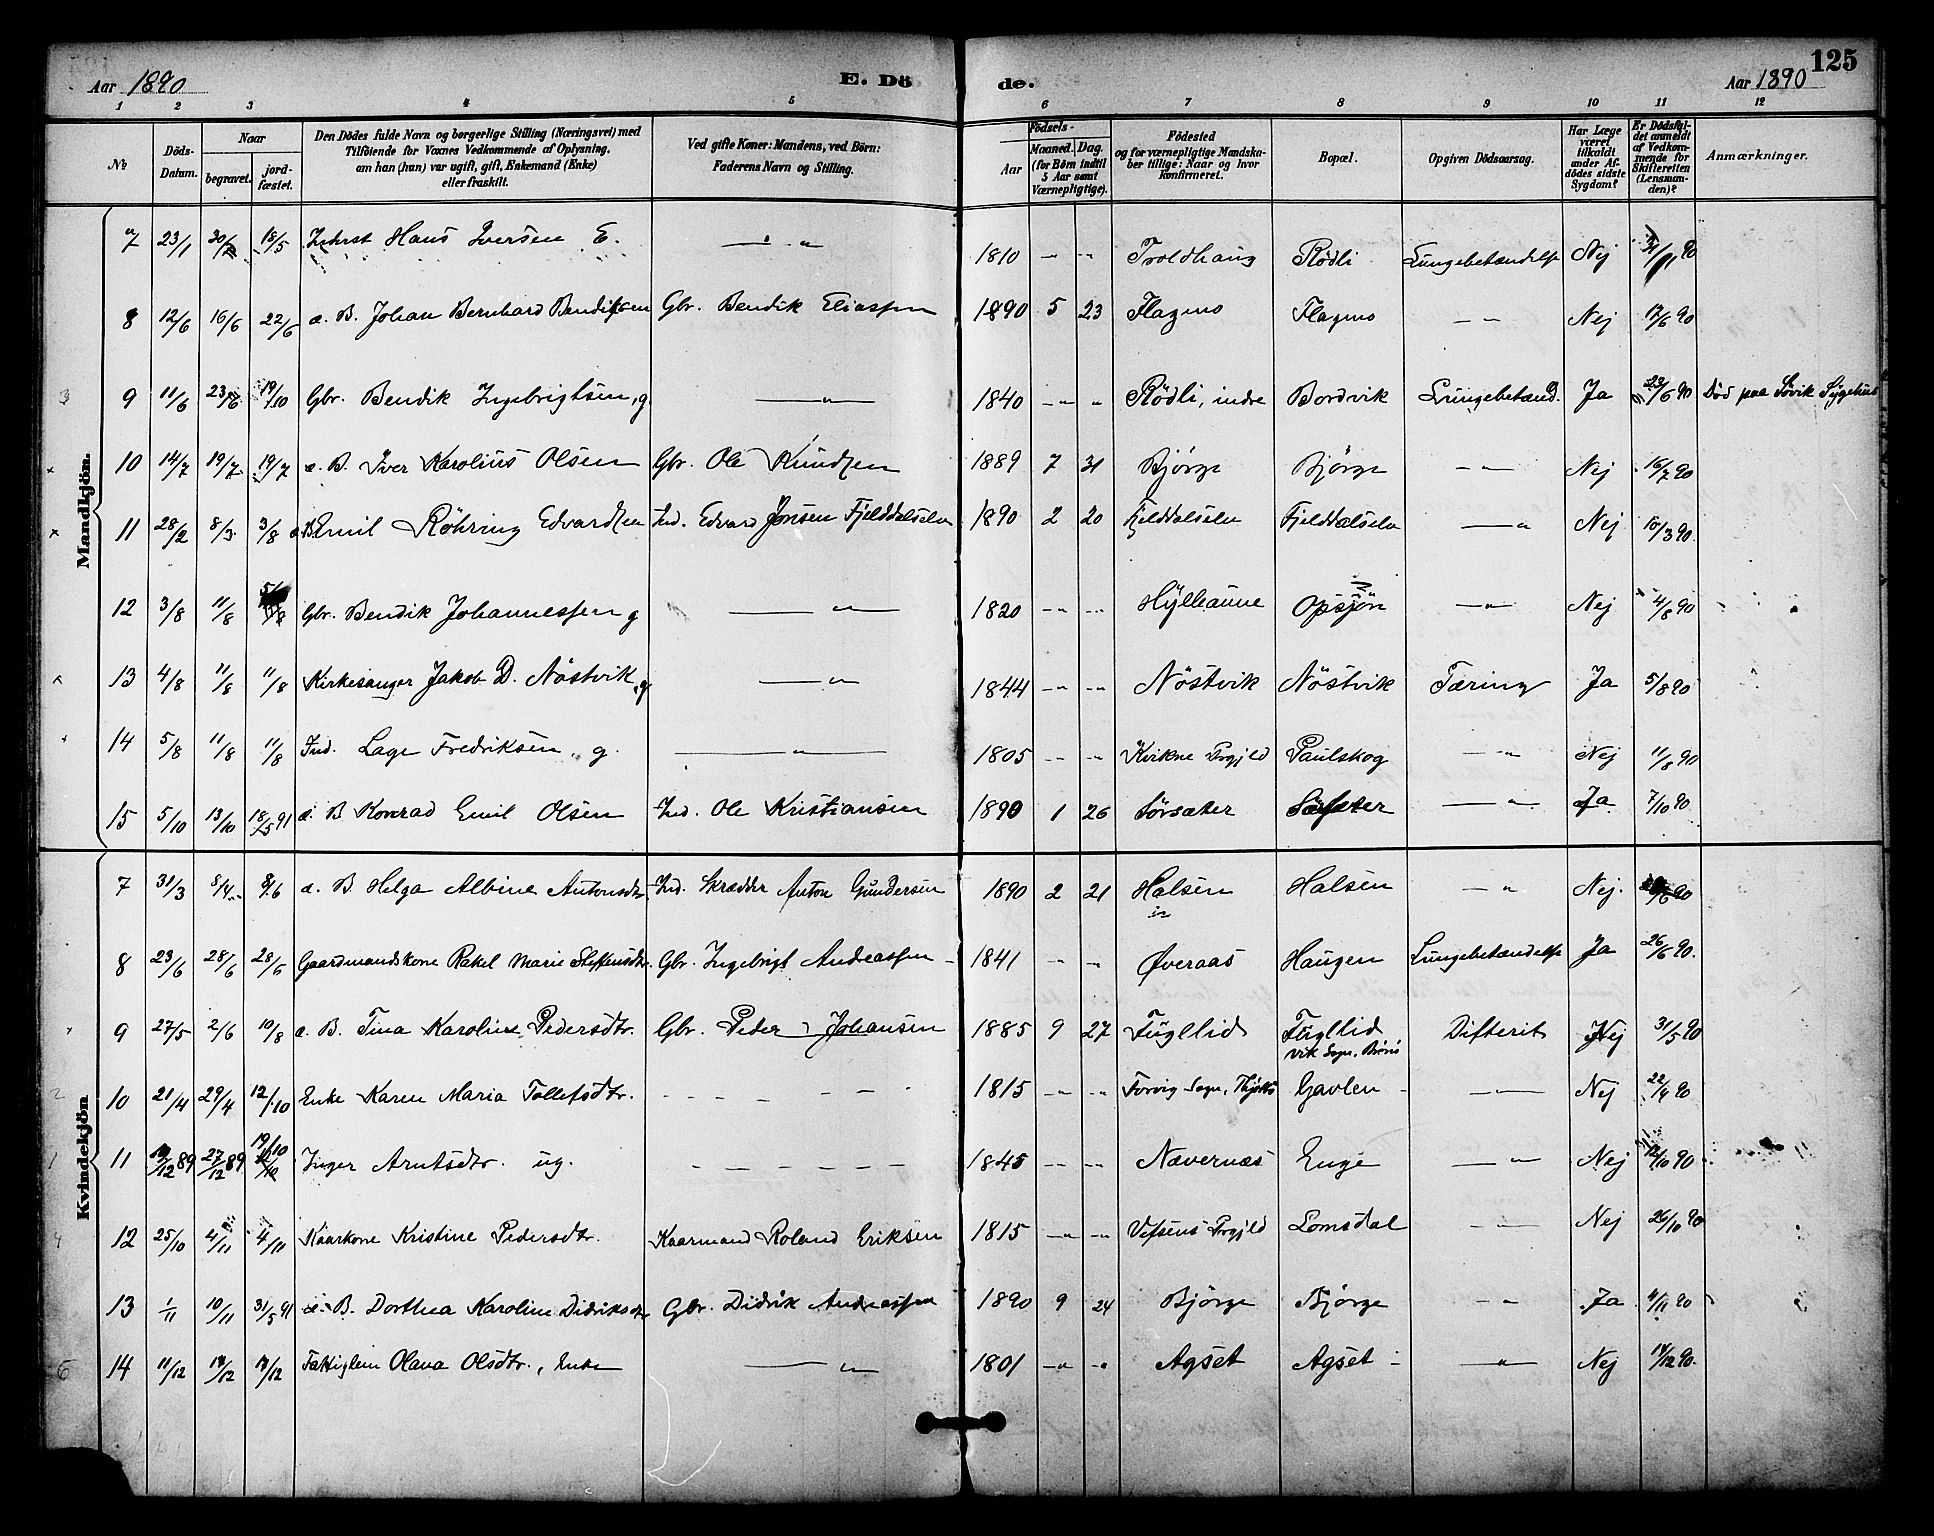 125
Aar 1890 E. Dö de. Aar 1890
1 2 3 4 5 6 7 8 9 10 11 12
№ Döds-Datum. Naar begravet. jord-fæstet. Den Dödes fulde Navn og borgerlige Stilling (Næringsvei) med Tilföiende for Voxnes Vedkommende af Oplysning, om han (hun) var ugift, gift, Enkemand (Enke) eller fraskilt. Ved gifte Koner: Mandens, ved Börn: Faderens Navn og Stilling. Födsels- Aar Maaned. Dag. (for Börn indtil 5 Aar samt Værnepligtige). Födested og for værnepligtige Mandskaber tillige: Naar og hvor konfirmeret. Bopæl. Opgiven Dödsaarsag. Har Læge været tilkaldt under Afdödes sidste Sygdom? Er Dödsfaldet anmeldt af Vedkommende for Skifteretten (Lensmanden)? Anmærkninger.
Mandkjön.
7 23/1 18/5 Hans Iversen E. — " 1810 — " Troldhaug Rödli Lungebetændelse Nej 90
8 12/6 16/6 22/6 a. B. Johan Bernhard Bendiksen Gbr. Bendik Eliassen 1890 5 23 Flagmo Flagmo — " Nej 17/6 90
9 11/6 23/6 19/10 Gbr. Bendik Ingebrigtsen, g. — " — 1840 — " " Rödli, indre Bordvik Lungebetænd. Ja 23/6 90 Död paa Søvik Sygehus
10 14/7 19/7 19/7 a. B. Iver Karolius Olsen Gbr. Ole Knudsen 1889 7 31 Bjørge Bjørge — " Nej 16/7 90
11 28/2 8/3 3/8 a. B. Emil Röhring Edvardsen Ind. Edvard Jonsen Fjelddalselv 1890 2 20 Fjelddalselv Fjelddalselv — " Nej 10/3 90
12 3/8 11/8 Gbr. Bendik Johannessen g — " — 1820 — " " Hylleaune Opsjön — " — Nej 4/8 90
13 4/8 11/8 11/8 Kirkesanger Jakob D. Nöstvik, g — " 1844 — " " Nöstvik Nöstvik Tæring Ja 5/8 90
14 5/8 11/8 11/8 Ind. Lage Fredriksen, g. — " — 1805 — " " Kvikne Prgjld Paulskog — " Nej 11/8 90
15 5/10 13/10 18/5 91 a. B Konrad Emil Olsen Ind. Ole Kristiansen 1890 1 26 Sörsæter — " Ja 7/10 90
Kvindekjön
7 31/3 8/4 8/6 a. B. Helga Albine Antonsdtr. Ind. Skrædder Anton Gundersen 1890 2 21 Halsen Halsen — " Nej. 90
8 23/6 28/6 28/6 Gaardmandskone Rakel Marie Steffensdtr. Gbr. Ingebrigt Andreassen 1841 — — Øveraas Haugen Lungebetændelse Ja 26/6 90.
9 27/5 2/6 10/8 a. B. Tina Karoline Pedersdtr. Gbr. Peder Johansen 1885 9 27 Fuglliid Fuglliid Difterit Nej 31/5 90
10 21/4 29/4 12/10 Enke Karen Maria Tollefsdtr. — — — 1815 — " " Gavlen — " Nej 22/4 90
11 /12 89 27/12 89 19/10 Inger Arntsdtr. ug. — — — 1845 — " " Nævernæs Enge — " Nej 12/10 90
12 25/10 4/11 4/11 Kaarkone Kristine Pedersdtr. Kaarmand Roland Eriksen 1815 — " " Vefsens Prgjld Lomsdal — " Nej 26/10 90
13 1/11 10/11 31/5 91 a. B. Dorthea Karoline Didriksdtr. Gbr. Didrik Andreassen 1890 9 24 Bjørge Bjørge — " Ja 4/11 90
14 11/12 Fattiglem Olava Olsdtr., Enke — " 1801 — " " Agset Agset — " — Nej 90.